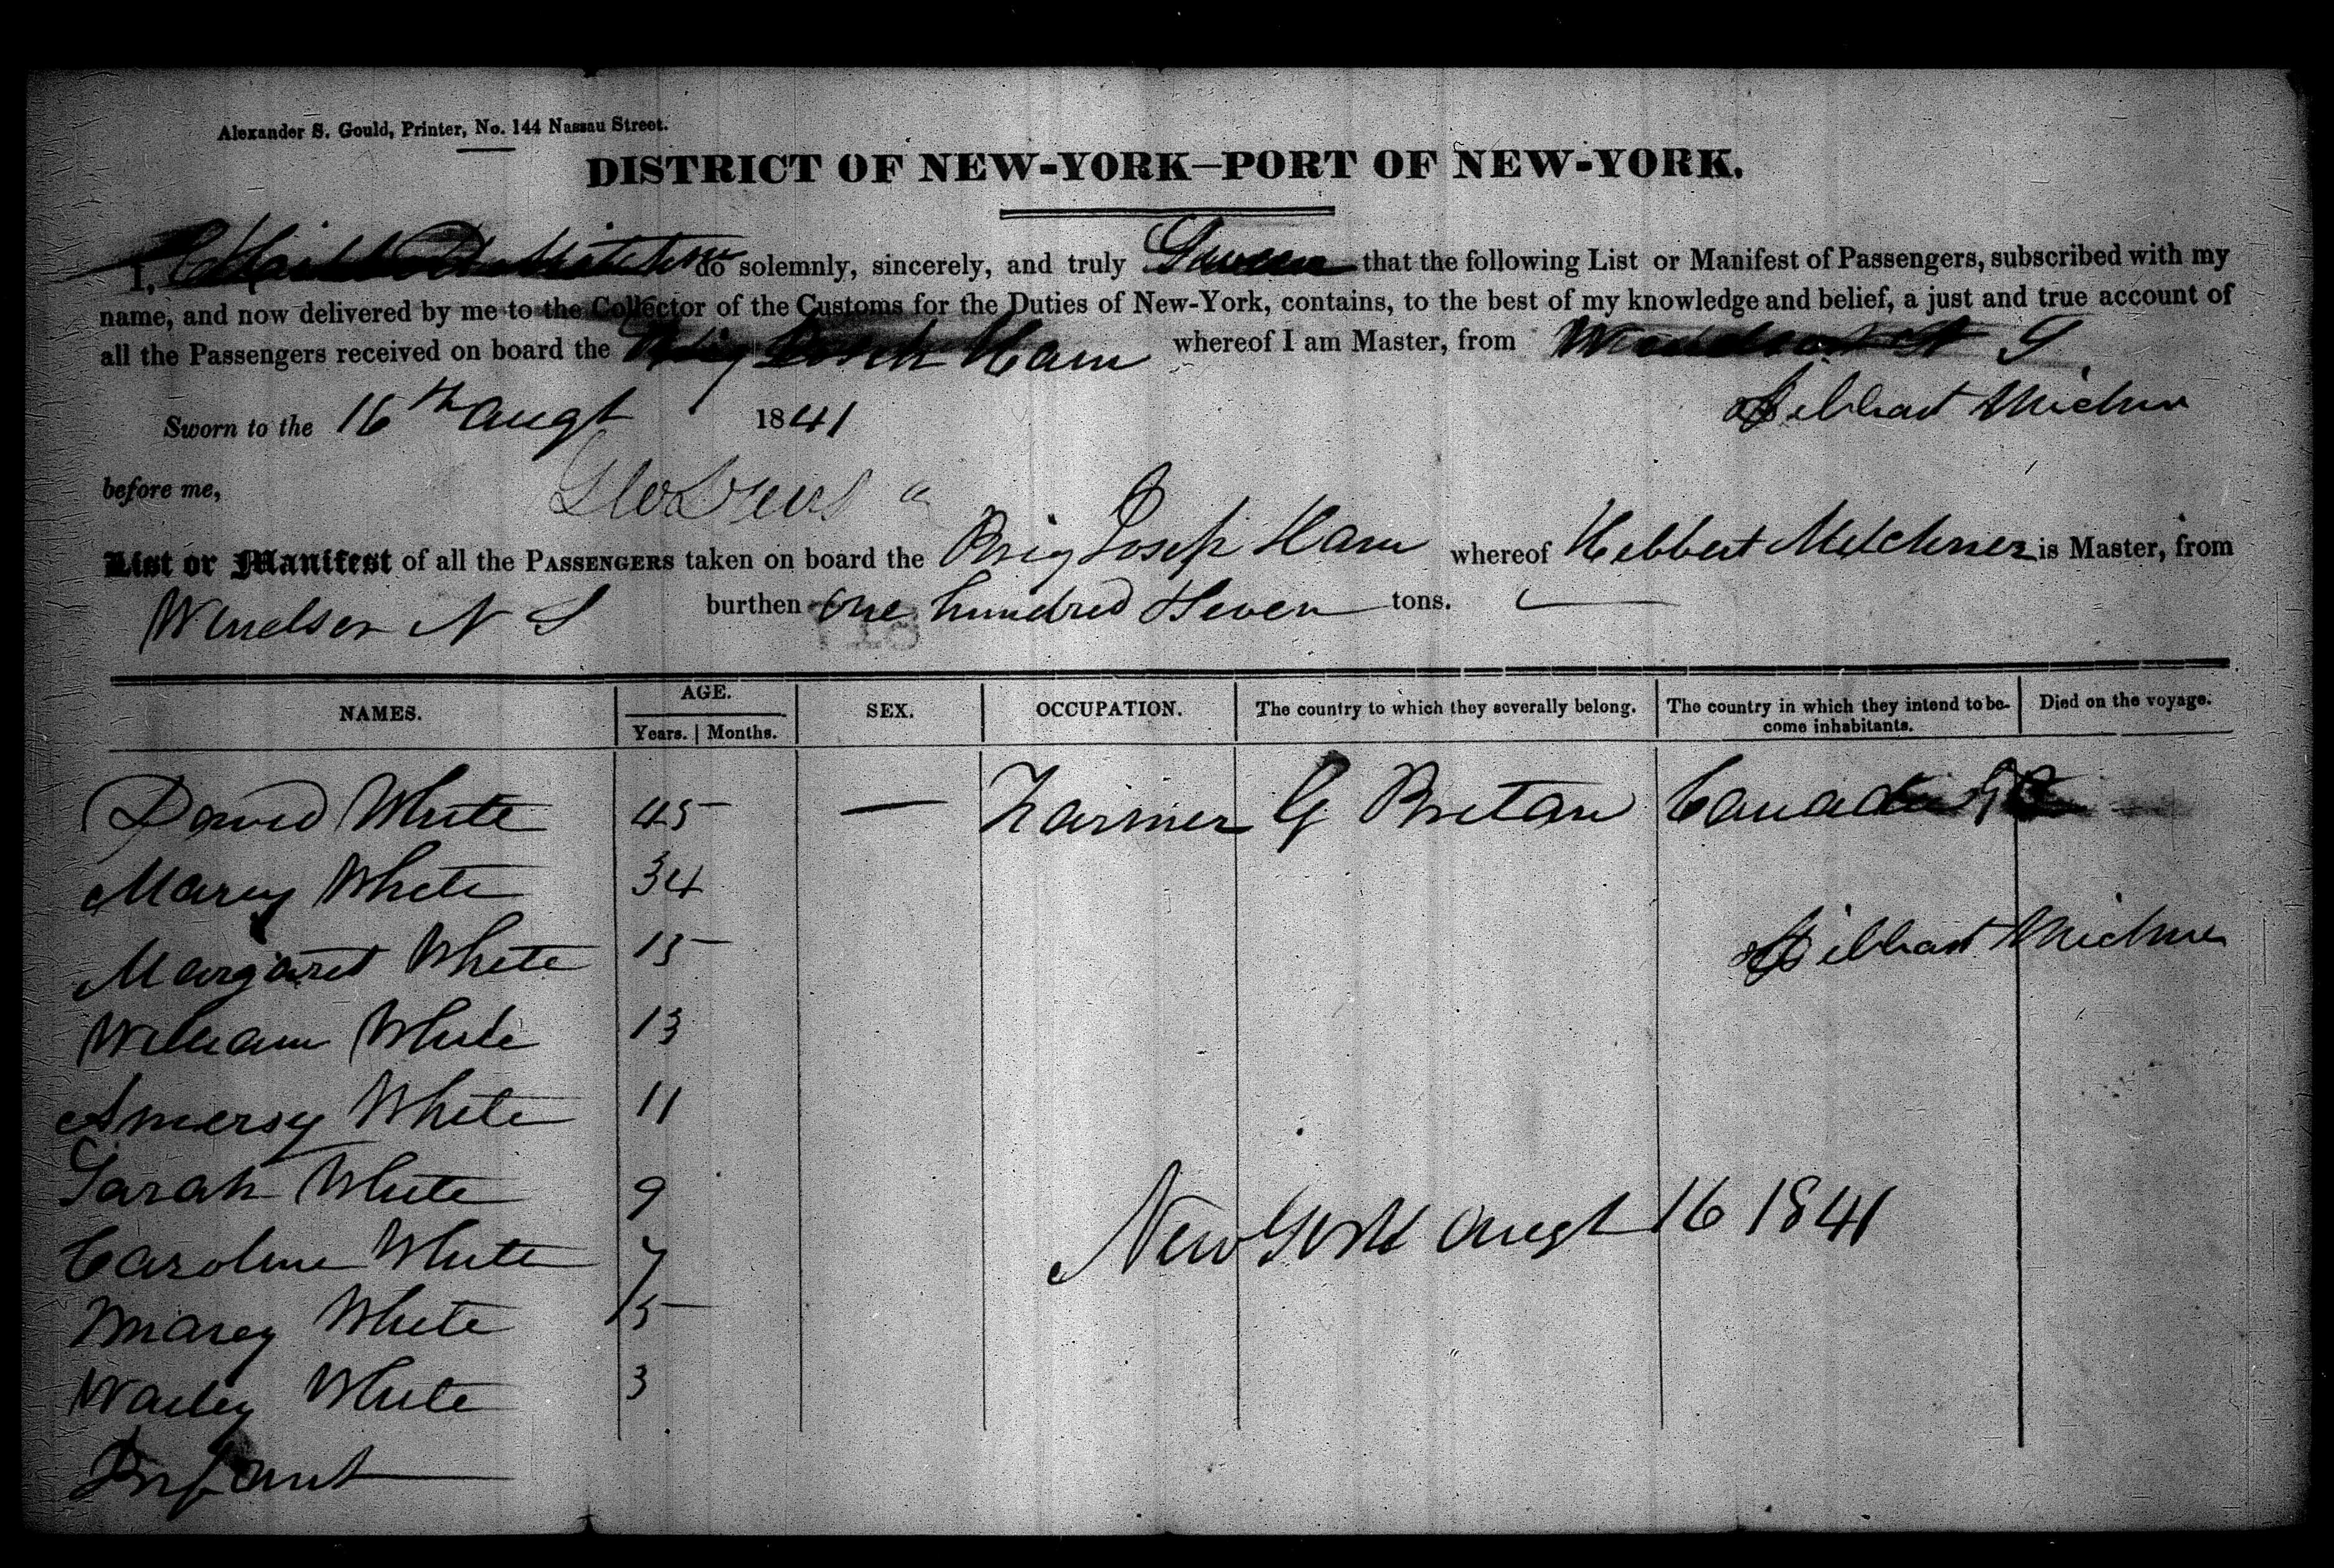 Alexander S. Gould, Printer, No. 144 Nassau Street.
DISTRICT OF NEW-YORK—PORT OF NEW-YORK.
I, do solemnly, sincerely, and truly Sween that the following List or Manifest of Passengers, subscribed with my
name, and now delivered by me to the Collector of the Customs for the Duties of New-York, contains, to the best of my knowledge and belief, a just and true account of
all the Passengers received on board the Brig Joseph Ham whereof I am Master, from Windsor N S
Sworn to the 16th Augt 1841
before me,
List or Manifest of all the PASSENGERS taken on board the Brig Joseph Ham whereof Hebbert Melchner is Master, from
Windsor N S burthen One hundred Seven tons.
NAMES. AGE. SEX. OCCUPATION. The country to which they severally belong. The country in which they intend to be- Died on the voyage.
Years. Months. come inhabitants.
David White 45 — Farmer G Bretan Canada
Marey White 34
Margaret White 15
William White 13
Amersy White 11
Sarah White 9
Caroline White 7
New York Augt 16 1841
Marey White 5
Wailey White 3
Infant